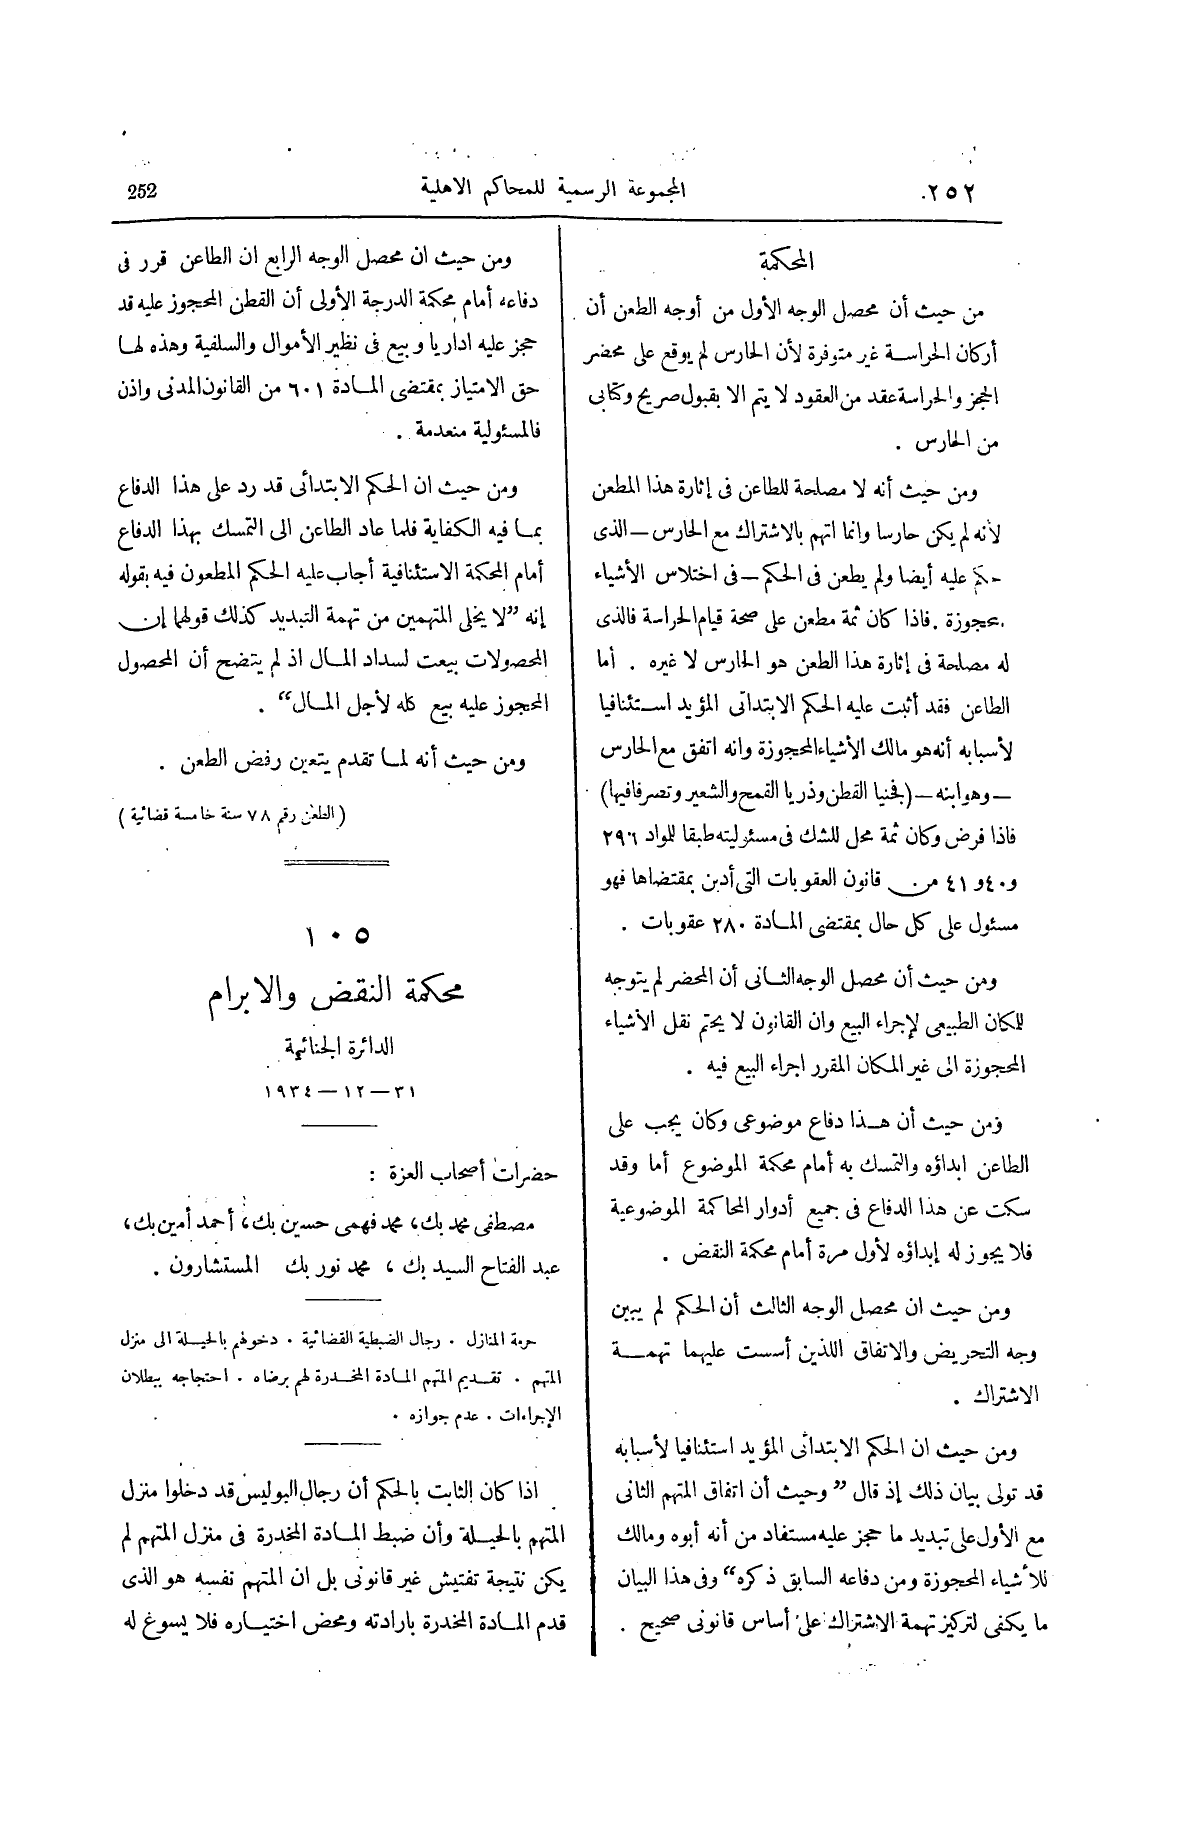 ٢٥٢
المجموعة الرسمية للمحاكم الاهلية
252
المحكمة
من حيث أن محصل الوجه الأول من أوجه الطعن أن
أركان الحراسة غير متوفرة لأن الحارس لم يوقع على محضر
الحجز والحراسة عقد من العقود لا يتم الا بقبول صريح وكتابى
من الحارس .
ومن حيث أنه لا مصلحة للطاعن فى إثارة هذا المطعن
لأنه لم يكن حارسا وانما اتهم بالاشتراك مع الحارس — الذى
حكم عليه أيضا ولم يطعن فى الحكم — فى اختلاس الأشياء
المحجوزة . فاذا كان ثمة مطعن على صحة قيام الحراسة فالذى
له مصلحة فى إثارة هذا الطعن هو الحارس لا غيره . أما
الطاعن فقد أثبت عليه الحكم الابتدائى المؤيد استئنافيا
لأسبابه أنه هو مالك الأشياء المحجوزة وانه اتفق مع الحارس
— وهو ابنه — (فجنيا القطن وذريا القمح والشعير وتصرفا فيها)
فاذا فرض وكان ثمة محل للشك فى مسئوليته طبقا للمواد ٢٩٦
و٤٠ و٤١ من قانون العقوبات التى أدين بمقتضاها فهو
مسئول على كل حال بمقتضى المادة ٢٨٠ عقوبات .
ومن حيث أن محصل الوجه الثانى أن المحضر لم يتوجه
للمكان الطبيعى لإجراء البيع وان القانون لا يحتم نقل الأشياء
المحجوزة الى غير المكان المقرر اجراء البيع فيه .
ومن حيث أن هذا دفاع موضوعى وكان يجب على
الطاعن ابداؤه والتمسك به أمام محكمة الموضوع أما وقد
سكت عن هذا الدفاع فى جميع أدوار المحاكمة الموضوعية
فلا يجوز له إبداؤه لأول مرة أمام محكمة النقض .
ومن حيث ان محصل الوجه الثالث أن الحكم لم يبين
وجه التحريض والاتفاق اللذين أسست عليهما تهمة
الاشتراك .
ومن حيث ان الحكم الابتدائى المؤيد استئنافيا لأسبابه
قد تولى بيان ذلك إذ قال ” وحيث أن اتفاق المتهم الثانى
مع الأول على تبديد ما حجز عليه مستفاد من أنه أبوه ومالك
للأشياء المحجوزة ومن دفاعه السابق ذكره“ وفى هذا البيان
ما يكفى لتركيز تهمة الاشتراك على أساس قانونى صحيح .
ومن حيث ان محصل الوجه الرابع ان الطاعن قرر فى
دفاعه أمام محكمة الدرجة الأولى أن القطن المحجوز عليه قد
حجز عليه اداريا وبيع فى نظير الأموال والسلفية وهذه لها
حق الامتياز بمقتضى المادة ٦٠١ من القانون المدنى واذن
فالمسئولية منعدمة .
ومن حيث ان الحكم الابتدائى قد رد على هذا الدفاع
بما فيه الكفاية فلما عاد الطاعن الى التمسك بهذا الدفاع
أمام المحكمة الاستئنافية أجاب عليه الحكم المطعون فيه بقوله
إنه ”لا يخلى المتهمين من تهمة التبديد كذلك قولهما إن
المحصولات بيعت لسداد المال اذ لم يتضح أن المحصول
المحجوز عليه بيع كله لأجل المال“ .
ومن حيث أنه لما تقدم يتعين رفض الطعن .
(الطعن رقم ٧٨ سنة خامسة قضائية)
١٠٥
محكمة النقض والابرام
الدائرة الجنائية
٣١ — ١٢ — ١٩٣٤
حضرات أصحاب العزة :
مصطفى محمد بك، محمد فهمى حسين بك، أحمد أمين بك،
عبد الفتاح السيد بك ، محمد نور بك المستشارون .
حرمة المنازل . رجال الضبطية القضائية . دخولهم بالحيلة الى منزل
المتهم . تقديم المتهم المادة المخدرة لهم برضاه . احتجاجه ببطلان
الإجراءات . عدم جوازه .
اذا كان الثابت بالحكم أن رجال البوليس قد دخلوا منزل
المتهم بالحيلة وأن ضبط المادة المخدرة فى منزل المتهم لم
يكن نتيجة تفتيش غير قانونى بل ان المتهم نفسه هو الذى
قدم المادة المخدرة بارادته ومحض اختياره فلا يسوغ له